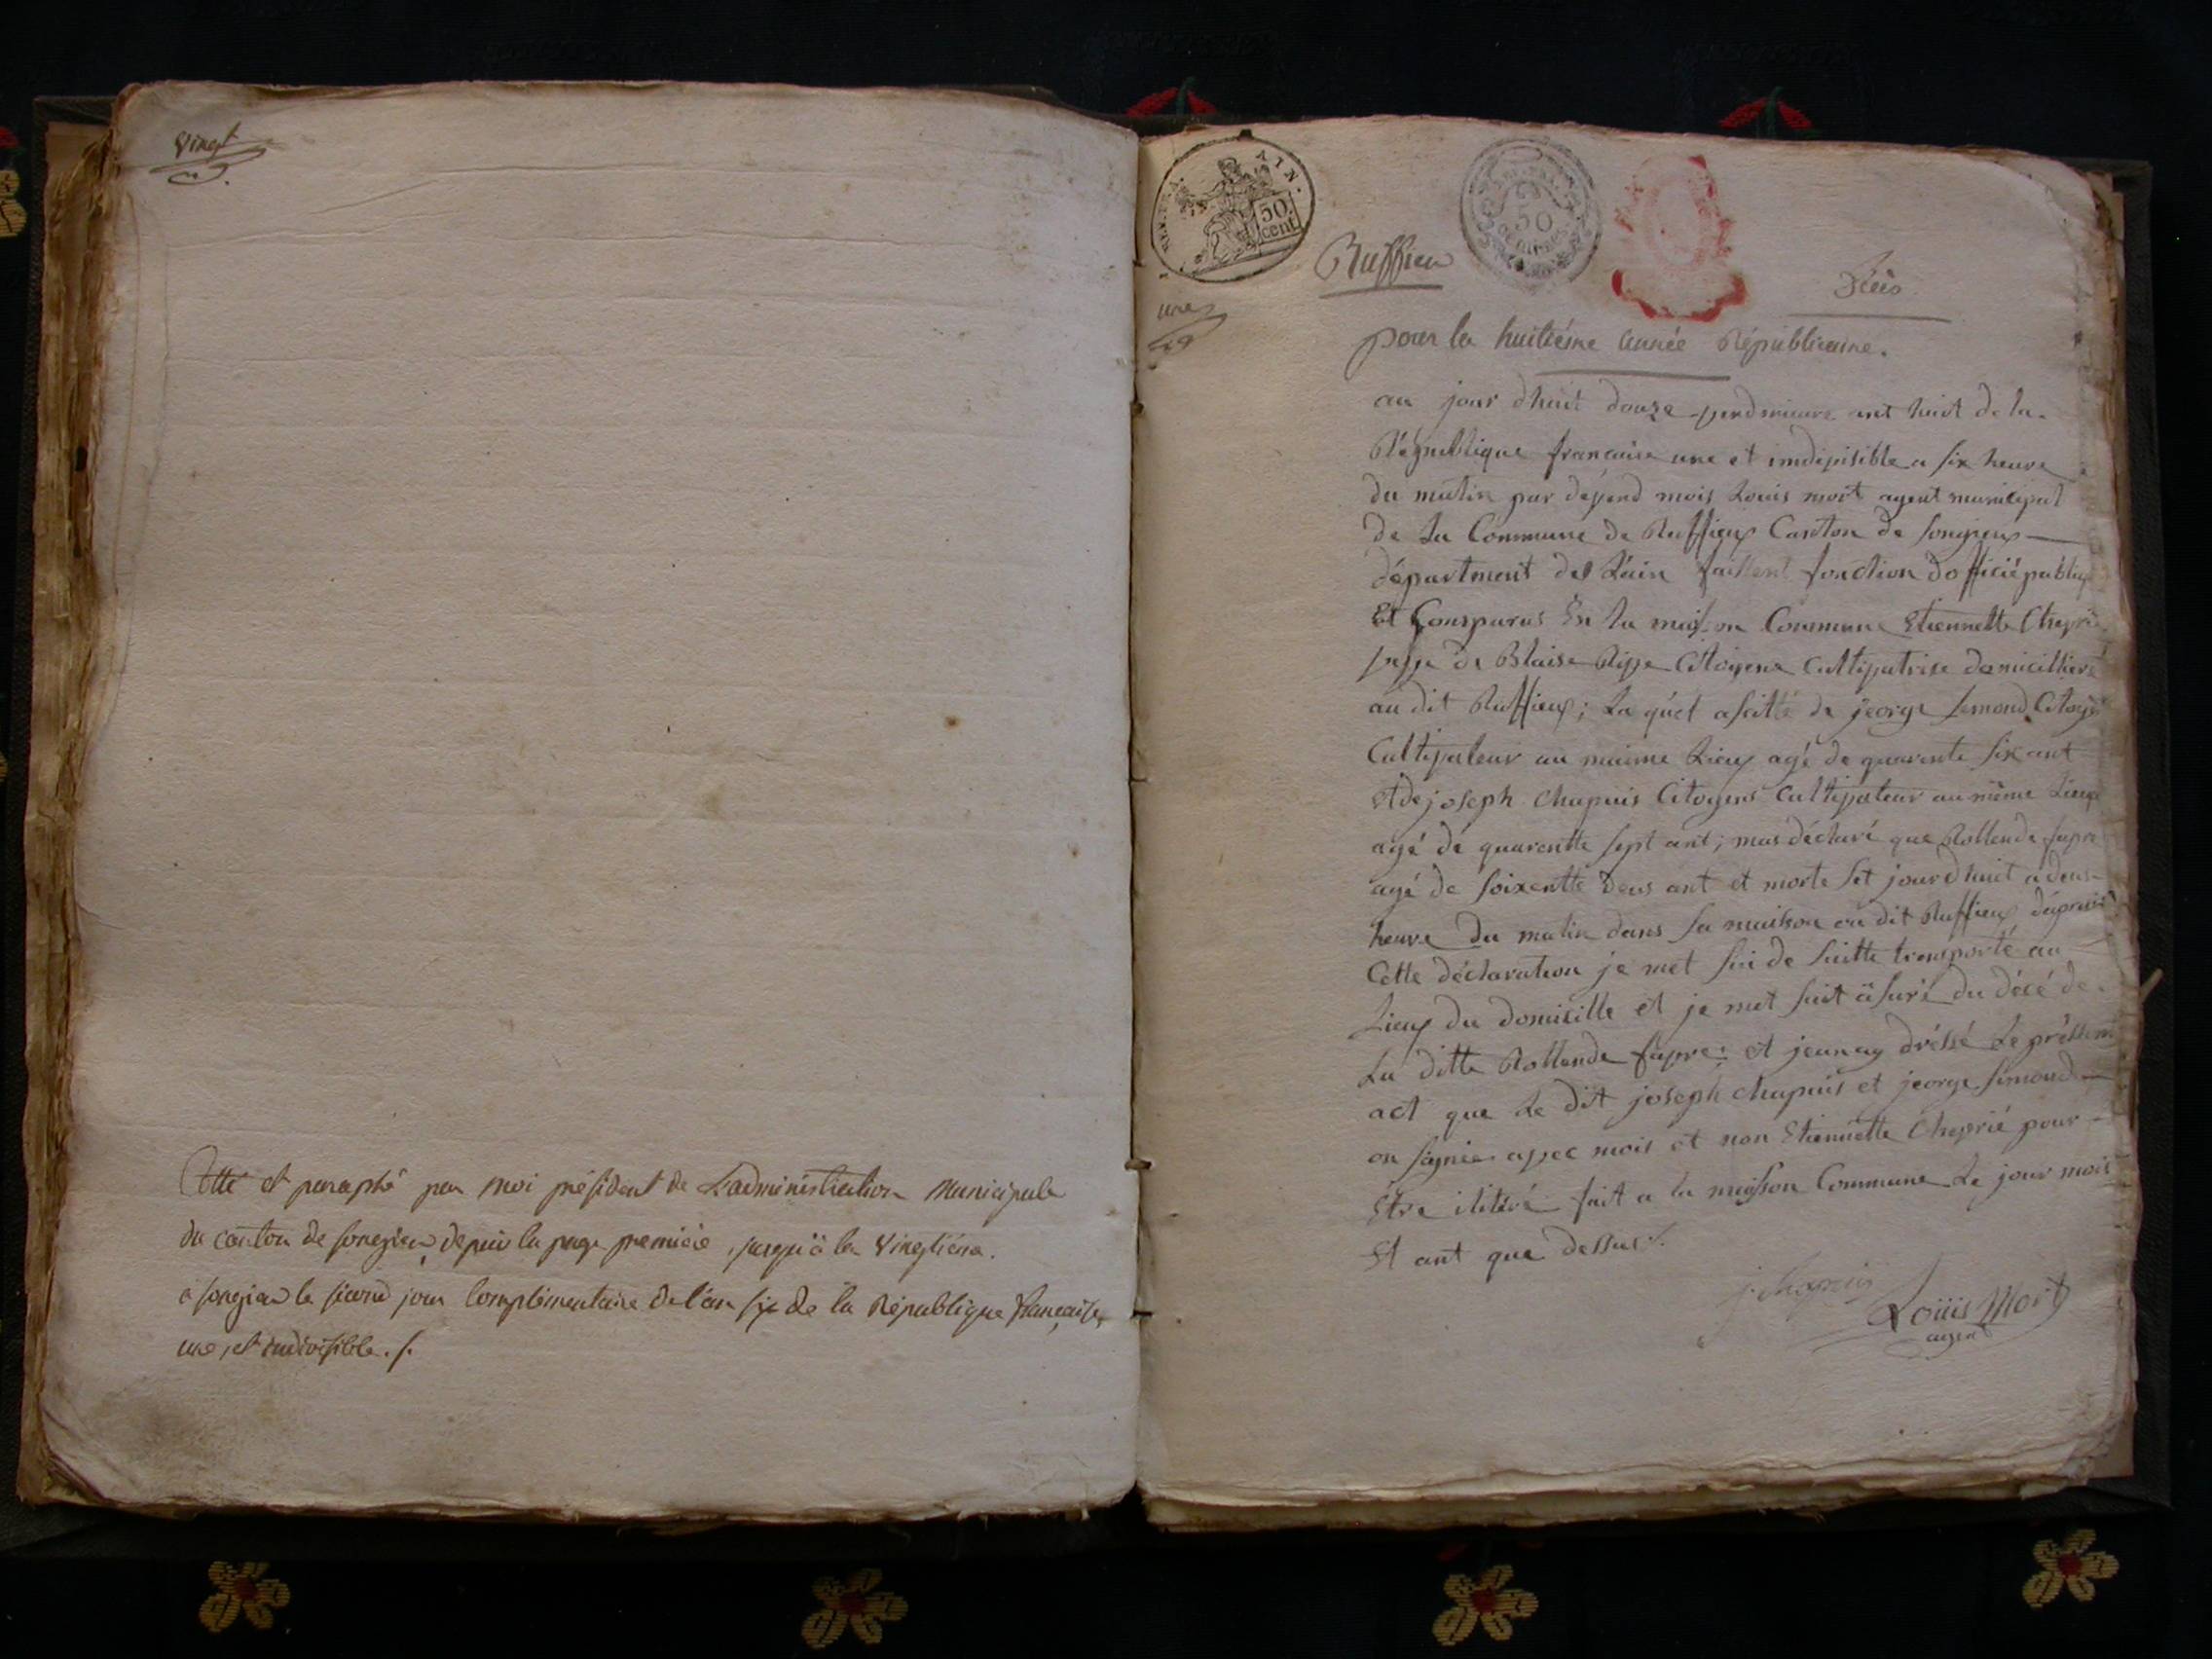 Vingt
Cotté et paraphé par moi président de L'administration Municipale
du canton de songieu, depuis la page premiere, jusqu'à la vingtiéme.
a songieu le second jour Complémentaire de l'an six de la République française,
une, et indivisible. /.
AIN.
50
cent.
50
CENTIMES
Ruffieu
une
Décès
pour la huitiéme année Républicaine.
au jour dhuit douze vendmiaire ant huit de la
République francaise une et indivisible a six heure
du matin par devend mois Louis mort agent municipal
de La Commune de Ruffieux Canton de songieux —
départment del Lain faissent fonction dofficié publiq
Et Comparus En La maison Commune Etiennette Cheprié
veve de Blaise Rippe Citoyene Cultivatrise domicilliere
au dit Ruffieux; La quel asisté de jeorge simond Citoyen
Cultivateur au maime Lieux agé de quarente six ant
Et de joseph Chapuis Citoyens Cultivateur au même Lieux
agé dé quarentte sept ant; mas déclaré que Rollende favre
agé de soixentte deus ant et morte set jourdhuit a deus
heure du matin dans sa maison au dit Ruffieux daprais
Cette déclaration je met sui de suitte transporté au
Lieux du domicille et je met suit äsuré du décé de
La ditte Rollende favre: et jeanay dréssé Le préssent
act que Le dit joseph Chapuis et jeorge simond —
on signée avec mois et non Etiennette Cheprié pour
Etre ilitéré fait a la maison Commune Le jour mois
Et ant que dessus /.
j Chapuis
Loüis Mort
agent